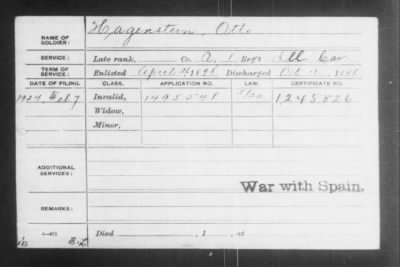 NAME OF SOLDIER: Hagenstein, Otto
SERVICE: Late rank, Co. A, 1 Reg't Ill Cav
TERM OF SERVICE: Enlisted April 1898 Discharged Oct 11, 1898
DATE OF FILING. CLASS. APPLICATION NO. LAW. CERTIFICATE NO.
1924, Feb. 7 Invalid, 1495548 1245526
Widow,
Minor,
ADDITIONAL SERVICES:
War with Spain.
REMARKS:
Died , 1 , at